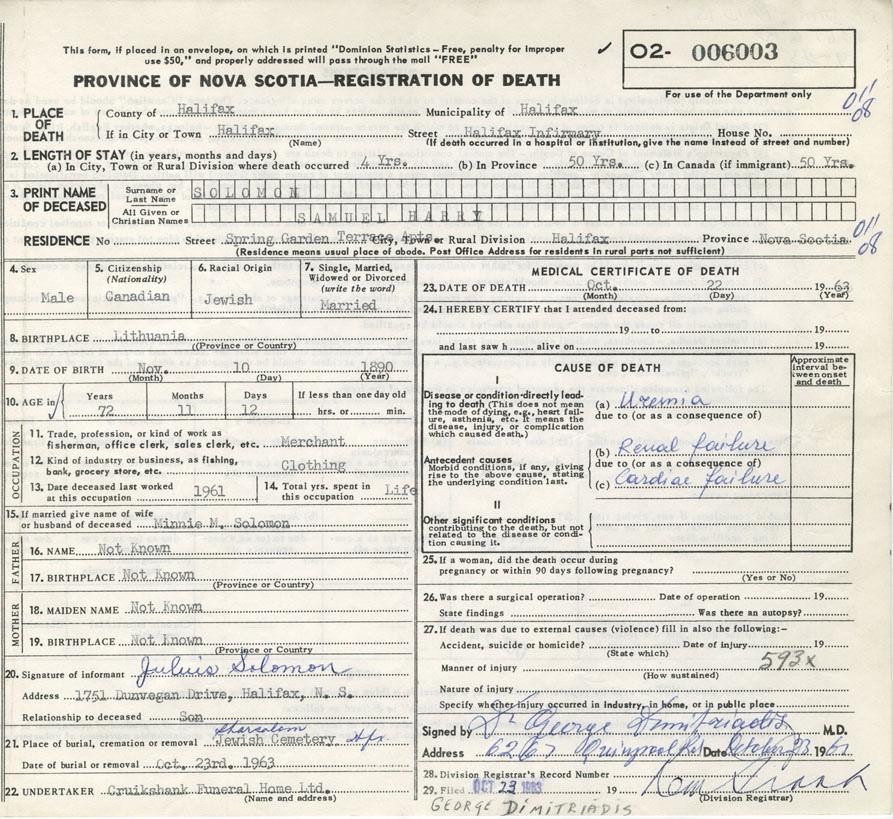 This form, if placed in an envelope, on which is printed "Dominion Statistics – Free, penalty for improper
use $50," and properly addressed will pass through the mail "FREE"
✓
O2- 006003
PROVINCE OF NOVA SCOTIA—REGISTRATION OF DEATH
For use of the Department only
1. PLACE OF DEATH
County of Halifax Municipality of Halifax
011
08
If in City or Town Halifax Street Halifax Infirmary House No.
(Name) (If death occurred in a hospital or institution, give the name instead of street and number)
2. LENGTH OF STAY (in years, months and days)
(a) In City, Town or Rural Division where death occurred 4 Yrs. (b) In Province 50 Yrs. (c) In Canada (if immigrant) 50 Yrs.
3. PRINT NAME OF DECEASED
Surname or Last Name SOLOMON
All Given or Christian Names SAMUEL HARRY
011
08
RESIDENCE No Street Spring Garden Terrace Apts. City, Town or Rural Division Halifax Province Nova Scotia
(Residence means usual place of abode. Post Office Address for residents in rural parts not sufficient)
4. Sex
Male
5. Citizenship
(Nationality)
Canadian
6. Racial Origin
Jewish
7. Single, Married,
Widowed or Divorced
(write the word)
Married
8. BIRTHPLACE Lithuania
(Province or Country)
9. DATE OF BIRTH Nov. 10 1890
(Month) (Day) (Year)
10. AGE in
Years Months Days If less than one day old
72 11 12 hrs. or min.
OCCUPATION
11. Trade, profession, or kind of work as
fisherman, office clerk, sales clerk, etc. Merchant
12. Kind of industry or business, as fishing,
bank, grocery store, etc. Clothing
13. Date deceased last worked
at this occupation 1961
14. Total yrs. spent in
this occupation Life
15. If married give name of wife
or husband of deceased Minnie M. Solomon
FATHER
16. NAME Not Known
17. BIRTHPLACE Not Known
(Province or Country)
MOTHER
18. MAIDEN NAME Not Known
19. BIRTHPLACE Not Known
(Province or Country
20. Signature of informant Julius Solomon
Address 1751 Dunvegan Drive, Halifax, N. S.
Relationship to deceased Son
21. Place of burial, cremation or removal Jewish Cemetery Hfx.
Date of burial or removal Oct. 23rd. 1963
22. UNDERTAKER Cruikshank Funeral Home Ltd.
(Name and address)
MEDICAL CERTIFICATE OF DEATH
23. DATE OF DEATH Oct. 22 1963
(Month) (Day) (Year)
24. I HEREBY CERTIFY that I attended deceased from:
19 to 19
and last saw h alive on 19
CAUSE OF DEATH
Approximate
interval be-
tween onset
and death
I
Disease or condition directly lead-
ing to death (This does not mean
the mode of dying, e.g., heart fail-
ure, asthenia, etc. It means the
disease, injury, or complication
which caused death.)
(a) Uremia
due to (or as a consequence of)
Antecedent causes
Morbid conditions, if any, giving
rise to the above cause, stating
the underlying condition last.
(b) Renal failure
due to (or as a consequence of)
(c) Cardiac failure
II
Other significant conditions
contributing to the death, but not
related to the disease or condi-
tion causing it.
25. If a woman, did the death occur during
pregnancy or within 90 days following pregnancy?
(Yes or No)
26. Was there a surgical operation? Date of operation 19
State findings Was there an autopsy?
27. If death was due to external causes (violence) fill in also the following:–
Accident, suicide or homicide? Date of injury 19
(State which)
593x
Manner of injury
(How sustained)
Nature of injury
Specify whether injury occurred in Industry, in home, or in public place
Signed by Dr George Dimitriadis M.D.
Address 6267 Quinpool Rd Date October 23 196
28. Division Registrar's Record Number
29. Filed OCT 23 1963 19
(Division Registrar)
GEORGE DIMITRIADIS